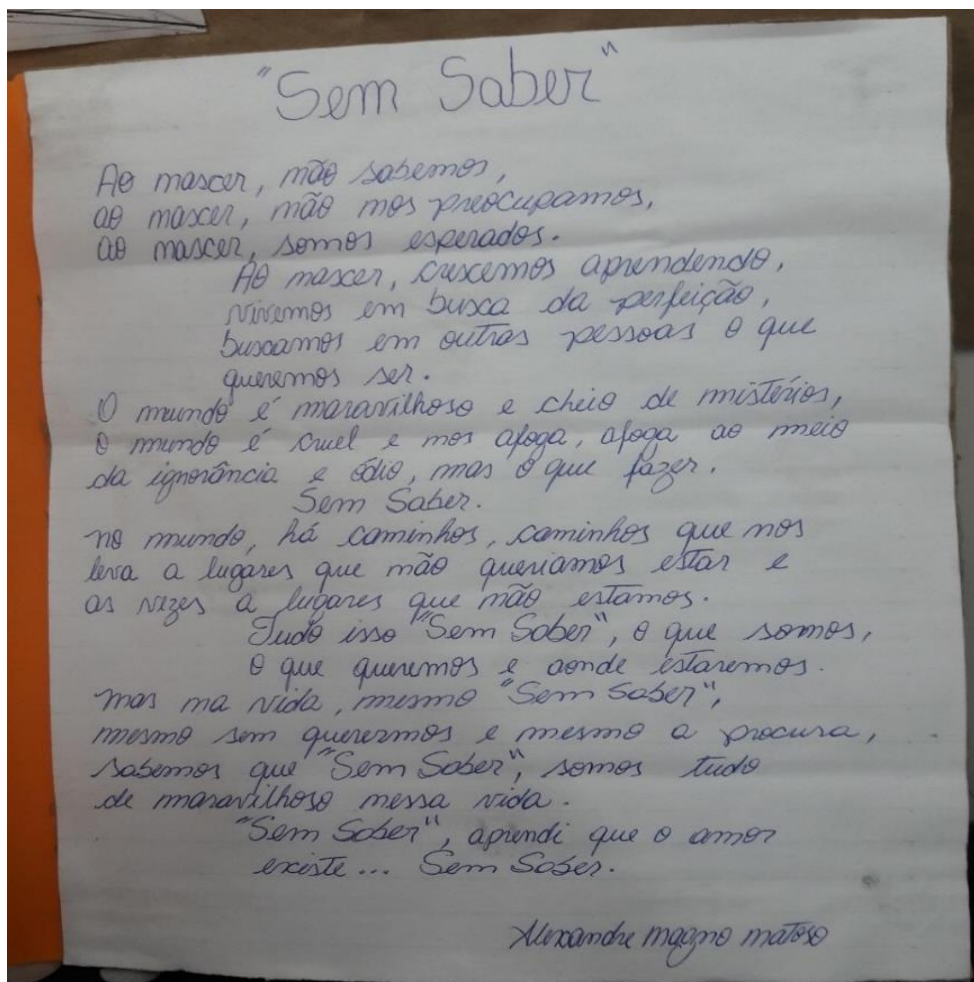 "Sem Saber"
Ao nascer, não sabemos,
ao nascer, não nos preocupamos,
ao nascer, somos esperados.
Ao nascer, crescemos aprendendo,
vivemos em busca da perfeição,
buscamos em outras pessoas o que
queremos ser.
O mundo é maravilhoso e cheio de mistérios,
o mundo é cruel e nos afoga, afoga ao meio
da ignorância e ódio, mas o que fazer.
Sem Saber.
no mundo, há caminhos, caminhos que nos
leva a lugares que não queriamos estar e
as vezes a lugares que não estamos.
Tudo isso "Sem Saber", o que somos,
o que queremos e aonde estaremos.
mas na vida, mesmo "Sem Saber",
mesmo sem querermos e mesmo a procura,
sabemos que "Sem Saber", somos tudo
de maravilhoso nessa vida.
"Sem Saber", aprendi que o amor
existe... Sem Saber.
Alexandre magno matoso